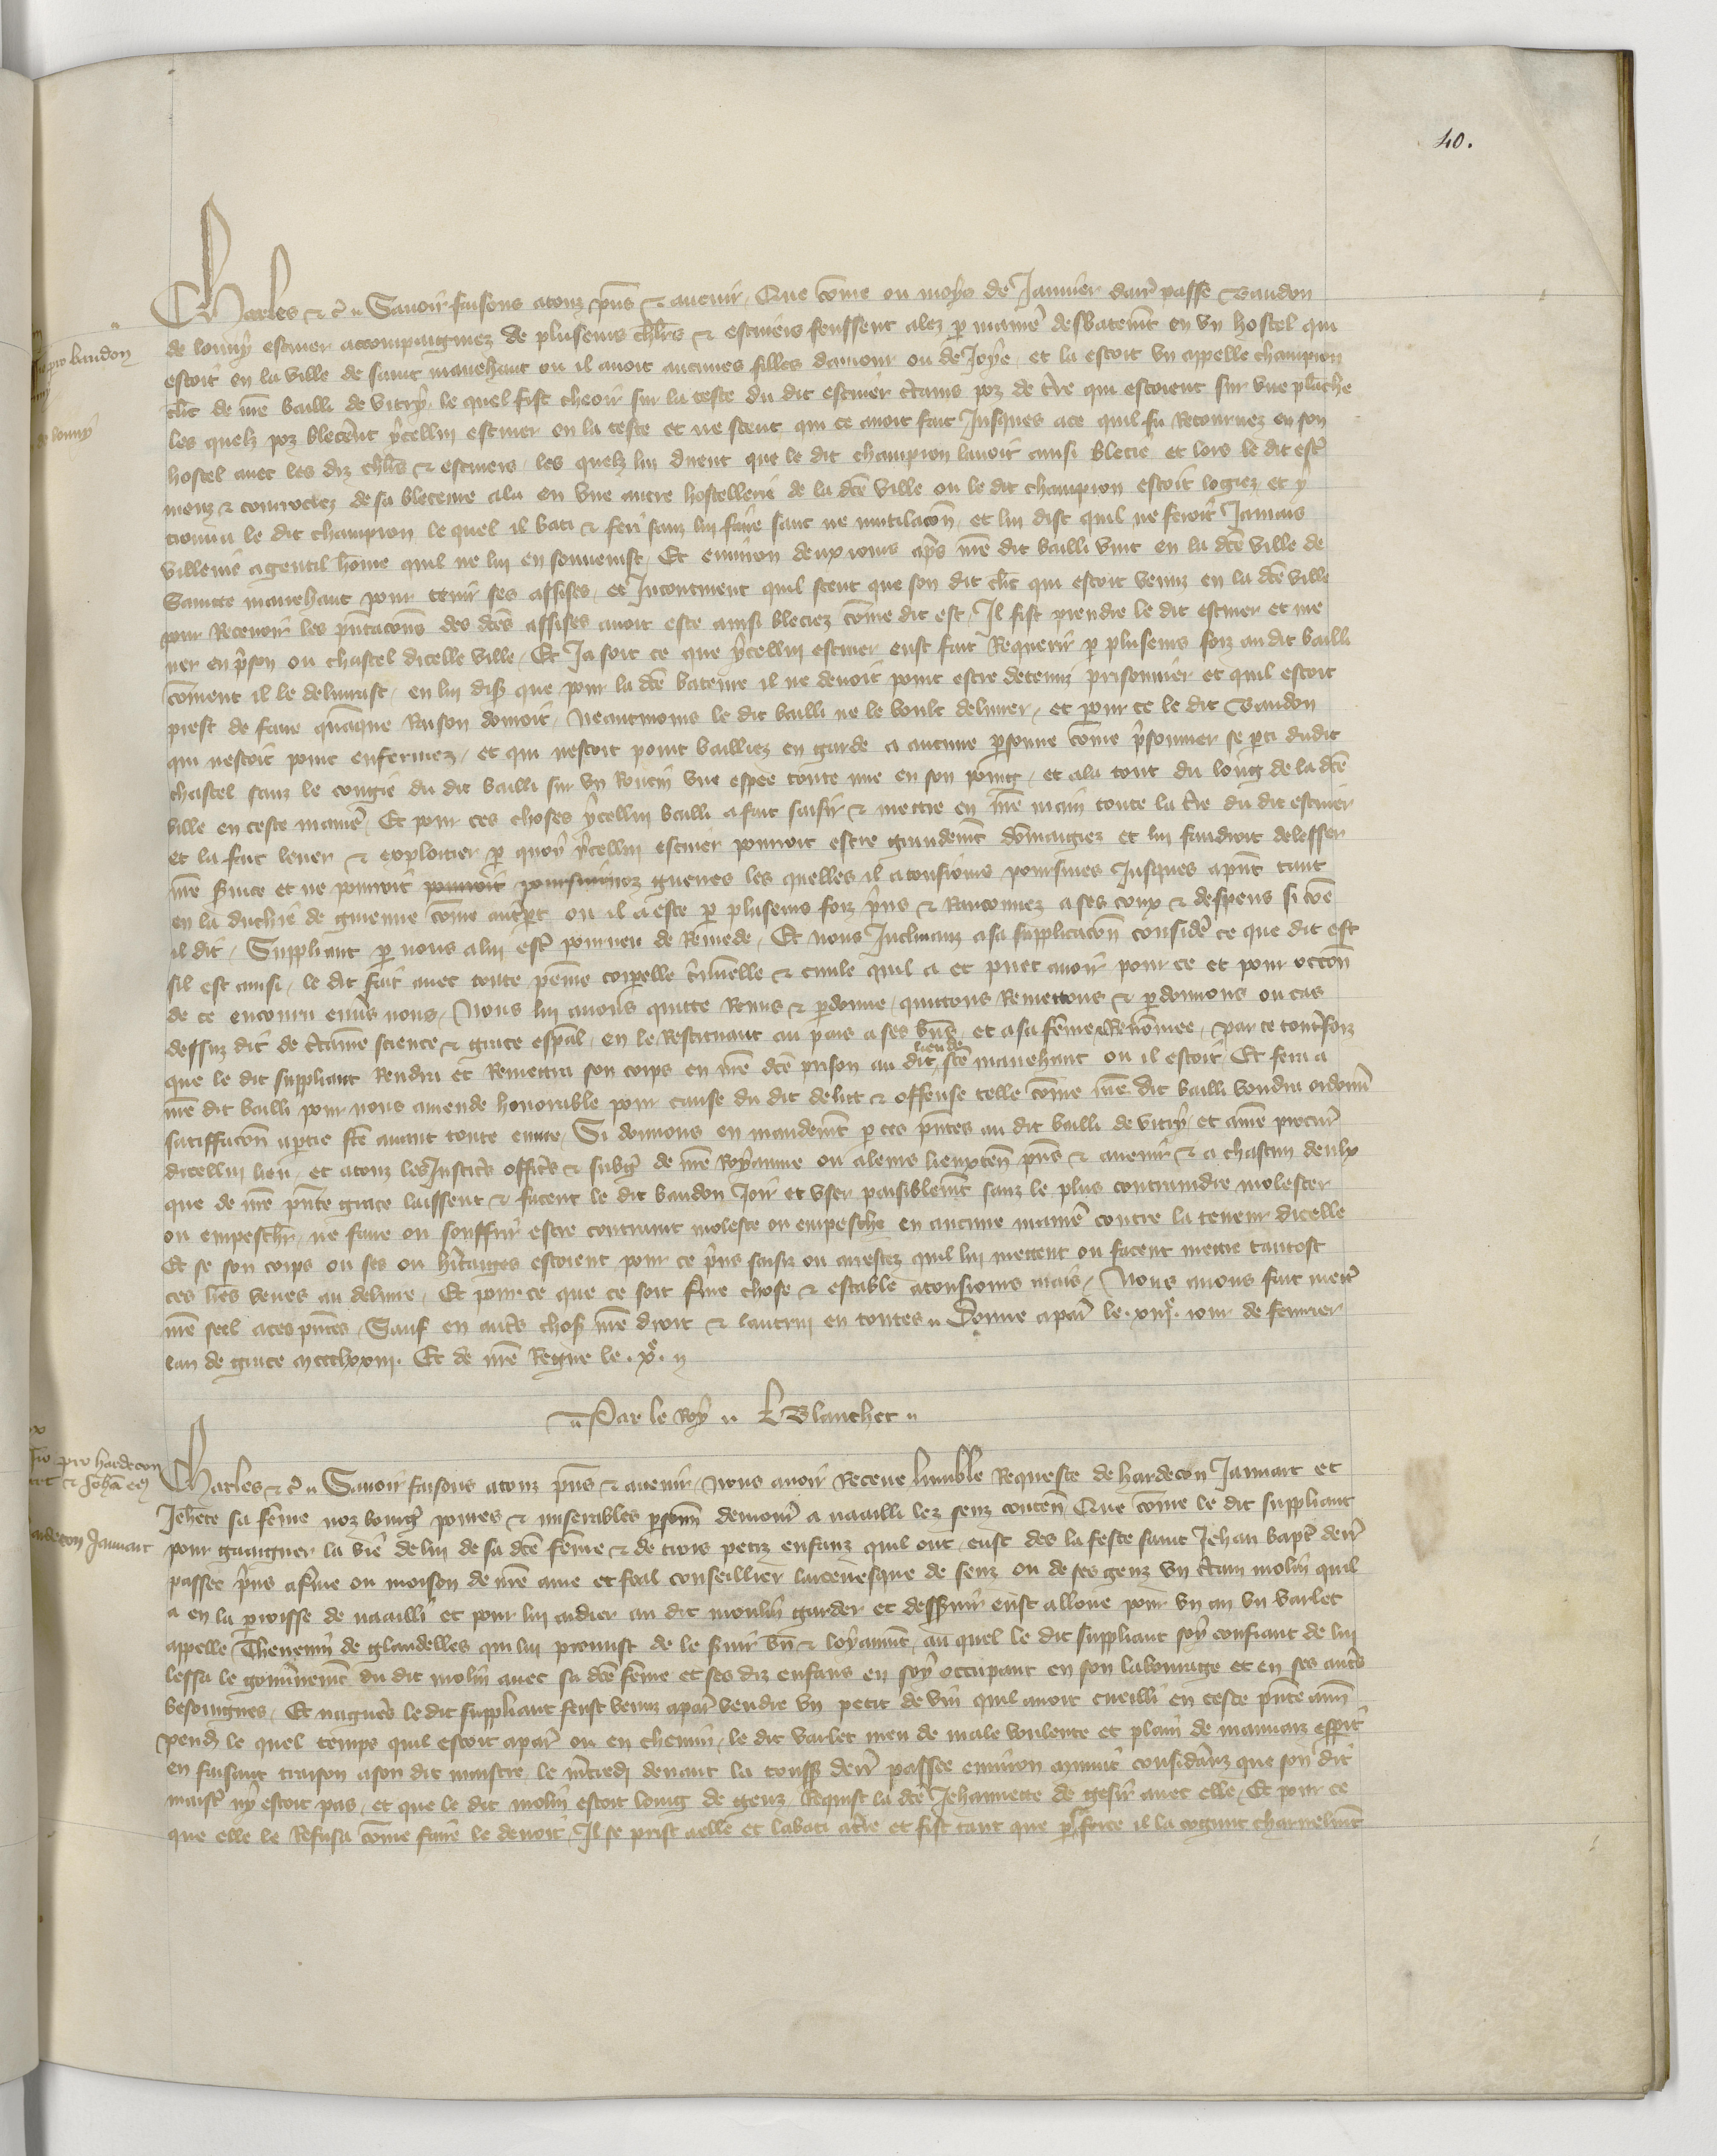 40.
Charles &c̃ Sauoir faisons atouz p̃ns & auenir Que cõme ou moys de Januier dairr̃ passe Baudon
pro baudon
de lonny escuier accompaigniez de plusieurs ch̃lrs & escuiers feussent alez p maniẽ desbatem̃t en vn hostel qui
estoit en la ville de saint manehaut ou il auoit aucunes filles damour ou de Joye et la estoit vn appelle champion
clẽc de nr̃e bailli de vitry le quel fist cheoir sur la teste du dit escuier c̃tains poz de t̃re qui estoient sur vne plãche
de lonny
les quelx poz blecer̃nt ycellui escuier en la teste et ne sceut qui ce auoit fait Jusques ace quil fu Retournez en son
hostel auec les diz ch̃lrs & escuiers les quelx lui dirent que le dit champion lauoit ainsi blecie et lors le dit esc̃
meuz & courrociez de sa bleceure ala en vne autre hostellerie de la dc̃e ville ou le dit champion estoit logiez et y
trouua le dit champion le quel il bati & feri sanz lui faire sanc ne mutilacõn et lui dist quil ne feroit Jamais
villenie agentil hõme quil ne lui en souuenist Et enuiron deux iours ap̃s nr̃e dit bailli vint en la dc̃e ville de
Saincte manehaut pour tenir ses assises et Incontinent quil sceut que son dit clẽc qui estoit venuz en la dc̃e ville
pour Receuoir les p̃ntacõns des dc̃es assises auoit este ainsi bleciez cõme dit est Il fist prendre le dit escuier et me
ner en p̃son ou chastel dicelle ville Et Ja soit ce que ycellui escuier eust fait Requerir p plusieurs foiz au dit bailli
cõment il le deliurast en lui disã que pour la dc̃e bateure il ne deuoit point estre detenu prisonnier et quil estoit
prest de faire quãque Raison donroit Neantmoins le dit bailli ne le voult deliurer et pour ce le dit Baudon
qui nestoit point enfermez et qui nestoit point bailliez en garde a aucune p̃sonne cõme p̃sonnier se p̃ti dudit
chastel sanz le congie du dit bailli sur vn Roncin vne espee toute nue en son poing et ala tout du long de la dc̃e
ville en ceste maniẽ Et pour ces choses ycellui bailli a fait saisir & mettre en nr̃e main toute la t̃re du dit escuier
et la fait leuer & exploitier p quoy ycellui escuier pourroit estre grandem̃t dõmagiez et lui faudroit delesser
nr̃e s̃uice et ne pourroit pourroit poursuiuoz guerres les quelles il a tousiours poursuies Jusques ap̃nt tant
en la duchie de guienne cõme aut̃pt ou il a este p plusieurs foiz p̃ns & Ranconnez a ses coux & despens si cõe
il dit Suppliant p nous alui est̃ pourueu de Remede Et nous Inclinanz asa supplicacõn consideŕ ce que dit est
sil est ainsi le dit fait auec toute peine corpelle c̃iminelle & ciuile quil a et puet auoir pour ce et pour occõn
de ce encouru enũs nous Nous lui auons quitte Remis & p̃donne quittons Remettons & p̃donnons ou cas
dessuz dit de c̃taine science & grace esp̃al en le Restituant au pais a ses biẽs et a sa fẽme Renõmee Par ce toutesfoiz
que le dit suppliant Rendra et Remettra son corps en nr̃e dc̃e prison au dit lieu de st̃e manehaut ou il estoit Et fera a
nr̃e dit bailli pour nous amende honorable pour cause du dit delict & offense telle cõme nr̃e dit bailli voudra ordoñ
satiffacõn aptie fc̃e auant toute euure Si donnons en mandem̃t p ces p̃ntes au dit bailli de vitry et anr̃e procuŕ
dicellui lieu et atouz les Justic̃s offic̃s & subg̃ de nr̃e Royaume ou aleurs lieuxteñ p̃ns & auenir & a chascun deulx
que de nr̃e p̃nte grace laissent & facent le dit baudon Joir et vser paisiblem̃t sanz le plus contraindre molester
ou empeschr̃ ne faire ou souffrir estre contraint moleste ou empeschie en aucune maniẽ contre la teneur dicelle
Et se son corps ou ses ou hitaiges estoient pour ce p̃ns saisiz ou arrestez quil lui mettent ou facent mettre tantost
ces lr̃es veues au deliure Et pour ce que ce soit ferme chose & estable atousiours mais Nous auons fait metr̃
nr̃e seel aces p̃ntes Sauf en aut̃s choses nr̃e droit & lautrui en toutes Donne apaŕ le xiiij̊ iour de feurier
lan de grace mccclxxiii Et de nr̃e Regne le x̊
Par le Roy Blanchet
Charles &c̃ Sauoir faisons atouz p̃ns & auenir Nous auoir Receue lumble Requeste de hardecon Januart et
pro hardecon
& Joh̃ã eỹ
Jeh̃ete sa fẽme noz bourg̃ poures & miserables p̃sonñ demour̃ a naailli lez senz conteñ Que cõme le dit suppliant
hardecon Januart
pour gaaigner la vie de lui de sa dc̃e fẽme & de trois petiz enfanz quil ont eust des la feste saint Jehan bapt̃ derr̃
passee p̃ns aferme ou moison de nr̃e ame et feal conseillier larceuesque de senz ou de ses genz vn c̃tain molin quil
a en la parroisse de naailli et pour lui aidier au dit moulin garder et desseruir eust alloue pour vn an vn varlet
appelle Theuenin de glandelles qui lui promist de le s̃uir bñ & loyaum̃t au quel le dit suppliant soy confiant de lui
lessa le gouũnem̃t du dit molin auec sa dc̃e fẽme et ses diz enfans en soy occupant en son labourage et en ses aut̃s
besoingnes Et nagueres le dit suppliant feust venuz apaŕ vendre vn petit de vin quil auoit cueilli en ceste p̃nte anñ
Pend̃ le quel temps quil estoit apaŕ ou en chemin le dit varlet meu de male voulente et plain de mauuaiz esperit
en faisant traison a son dit maistre le m̃credj deuant la touss̃ derr̃ passee enuiron mynuit consid̃anz que son dit
maist̃ ny estoit pas et que le dit molin estoit loing de genz Requist la dc̃e Jehannette de gesir auec elle Et pour ce
que elle le Refusa cõme faire le deuoit Il se prist aelle et labati at̃re et fist tant que p force il la cognut charnelm̃t